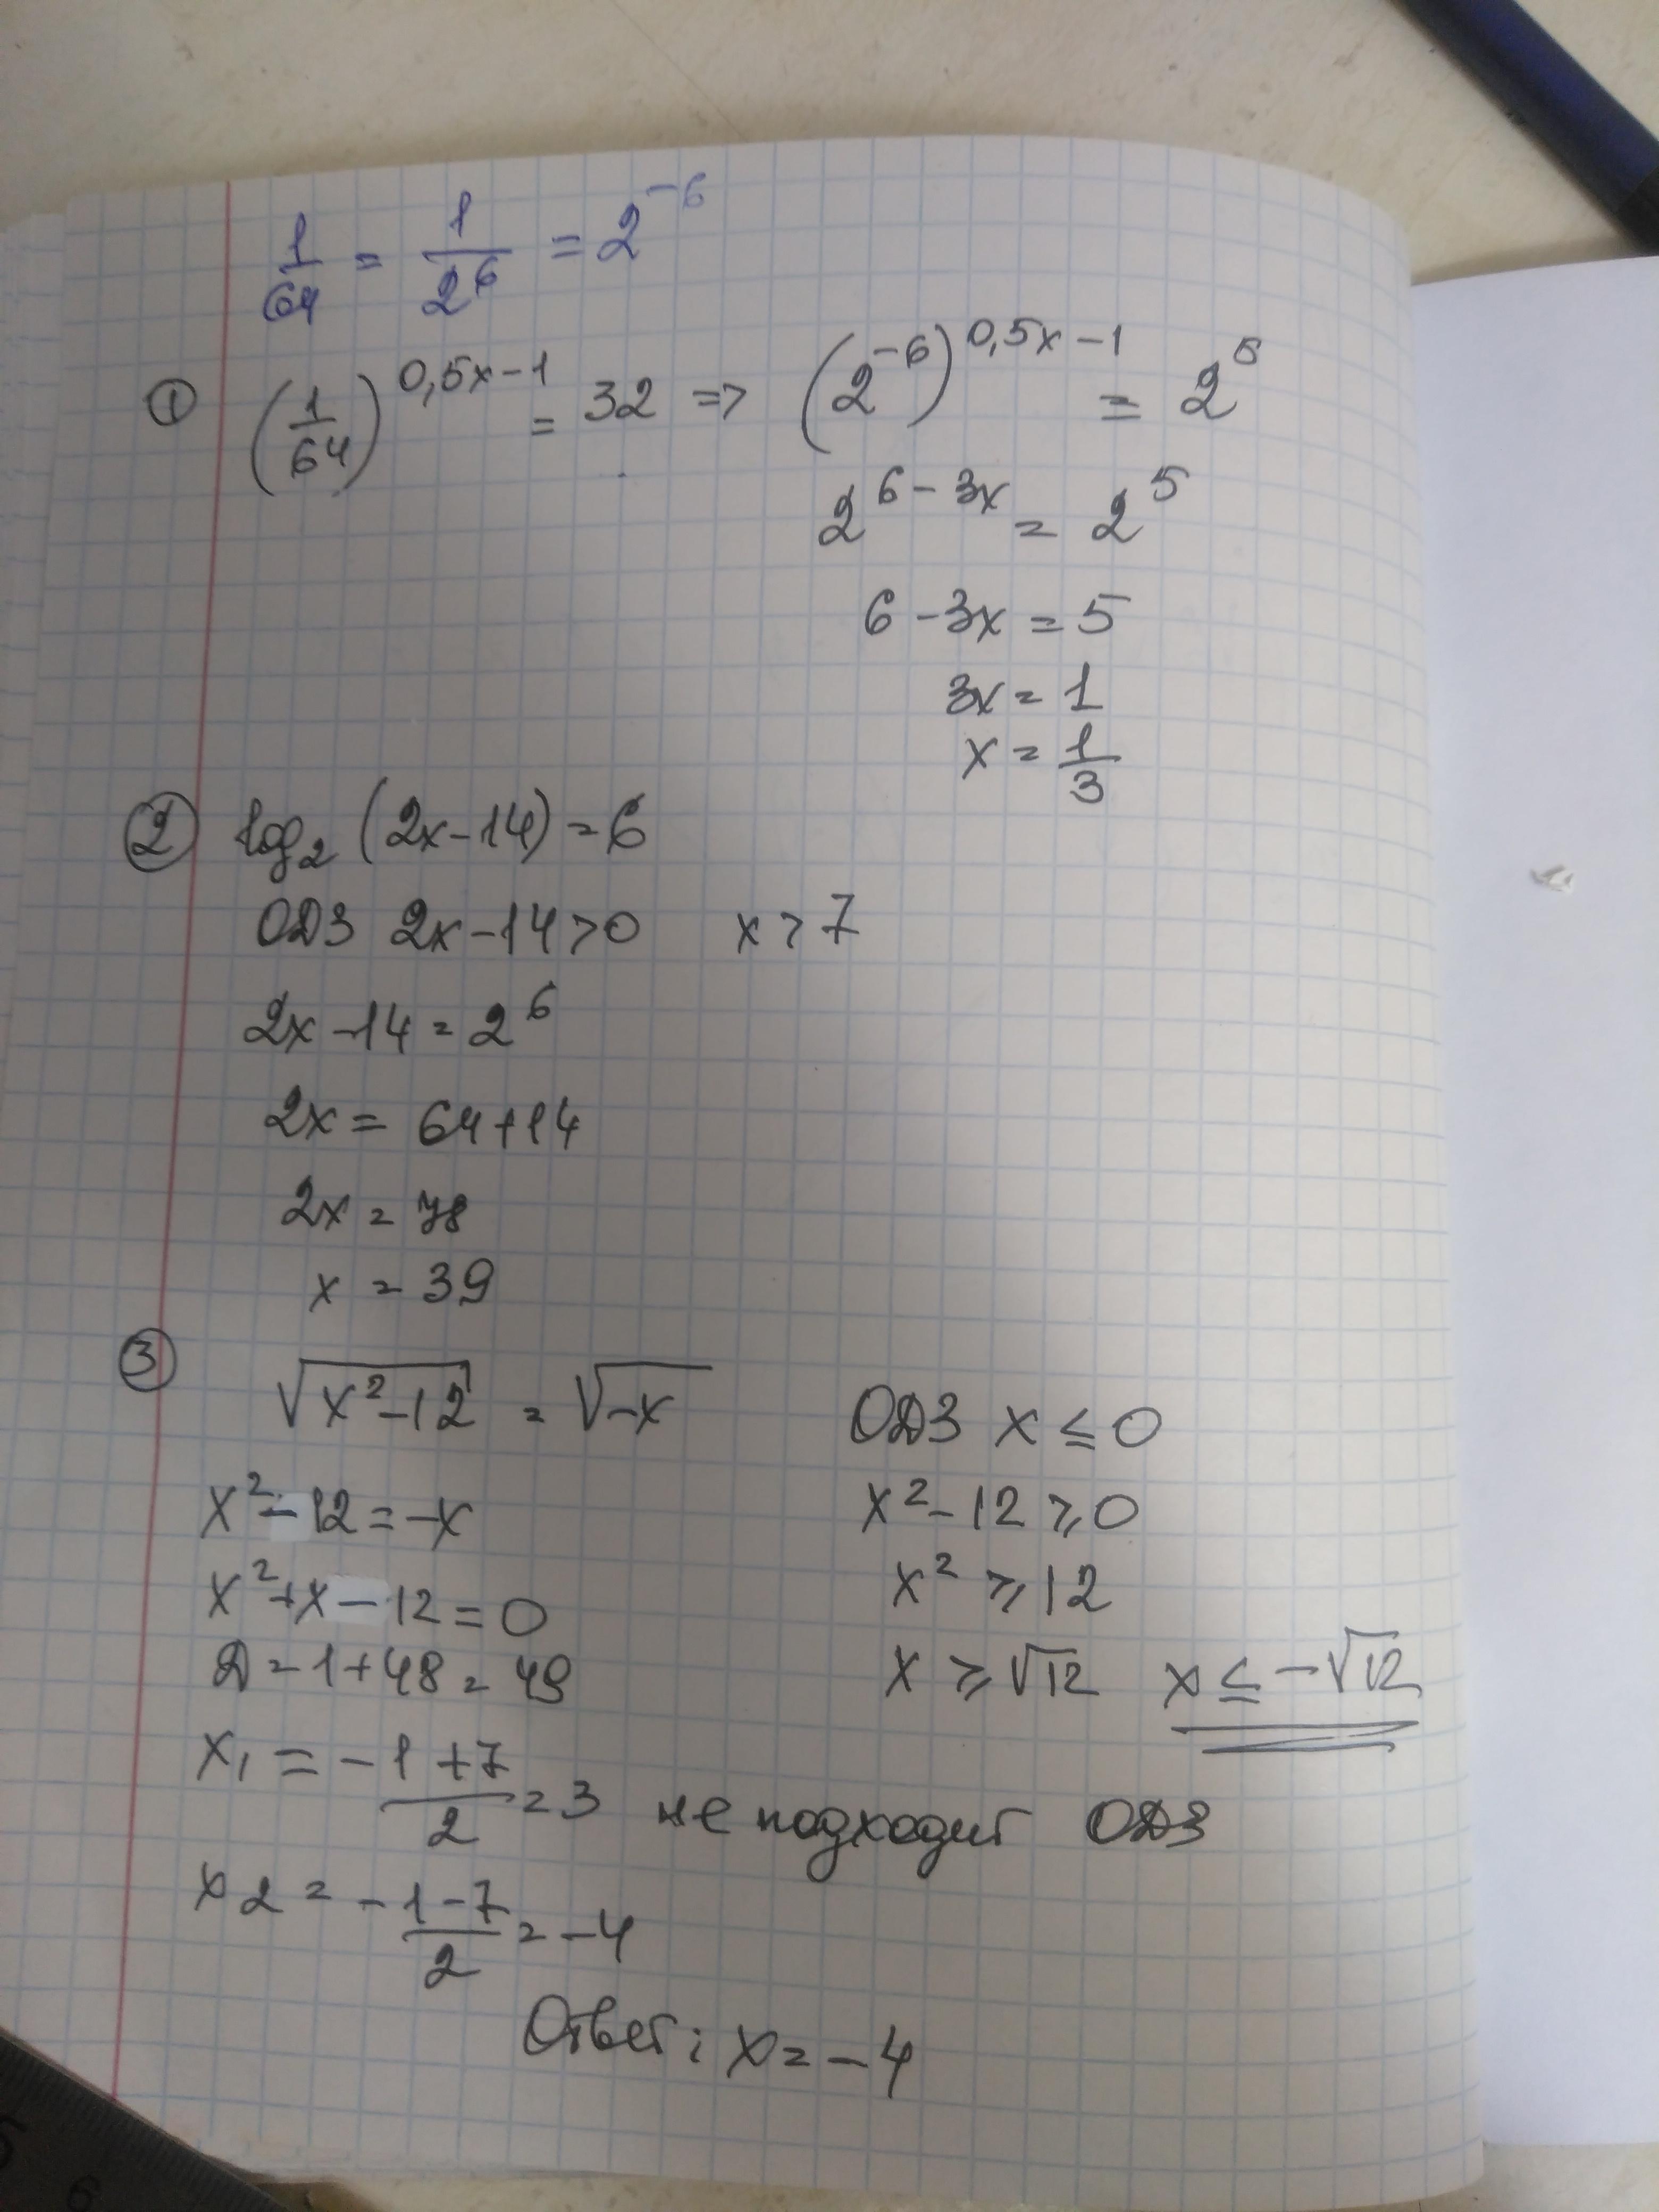 1/64 = 1/2^6 = 2^-6
① (1/64)^0,5x-1 = 32 => (2^-6)^0,5x-1 = 2^5
2^6-3x = 2^5
6-3x = 5
3x = 1
x = 1/3
② log₂ (2x-14) = 6
ОДЗ 2x-14>0 x > 7
2x-14 = 2^6
2x = 64+14
2x = 78
x = 39
③ √(x²-12) = √(-x) ОДЗ x ≤ 0
x²-12 = -x x²-12 ≥ 0
x²+x-12 = 0 x² ≥ 12
Д = 1+48 = 49 x ≥ √12 x ≤ -√12
x₁ = -1+7/2 = 3 не подходит ОДЗ
x₂ = -1-7/2 = -4
Ответ: x = -4
5 6